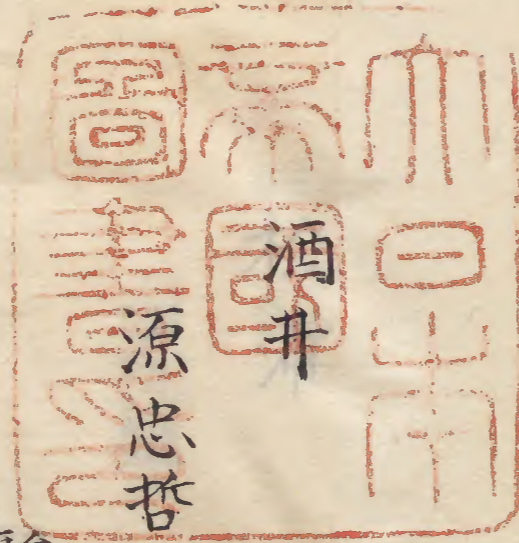 大日本
帝國
圖書印
酒井
源忠哲